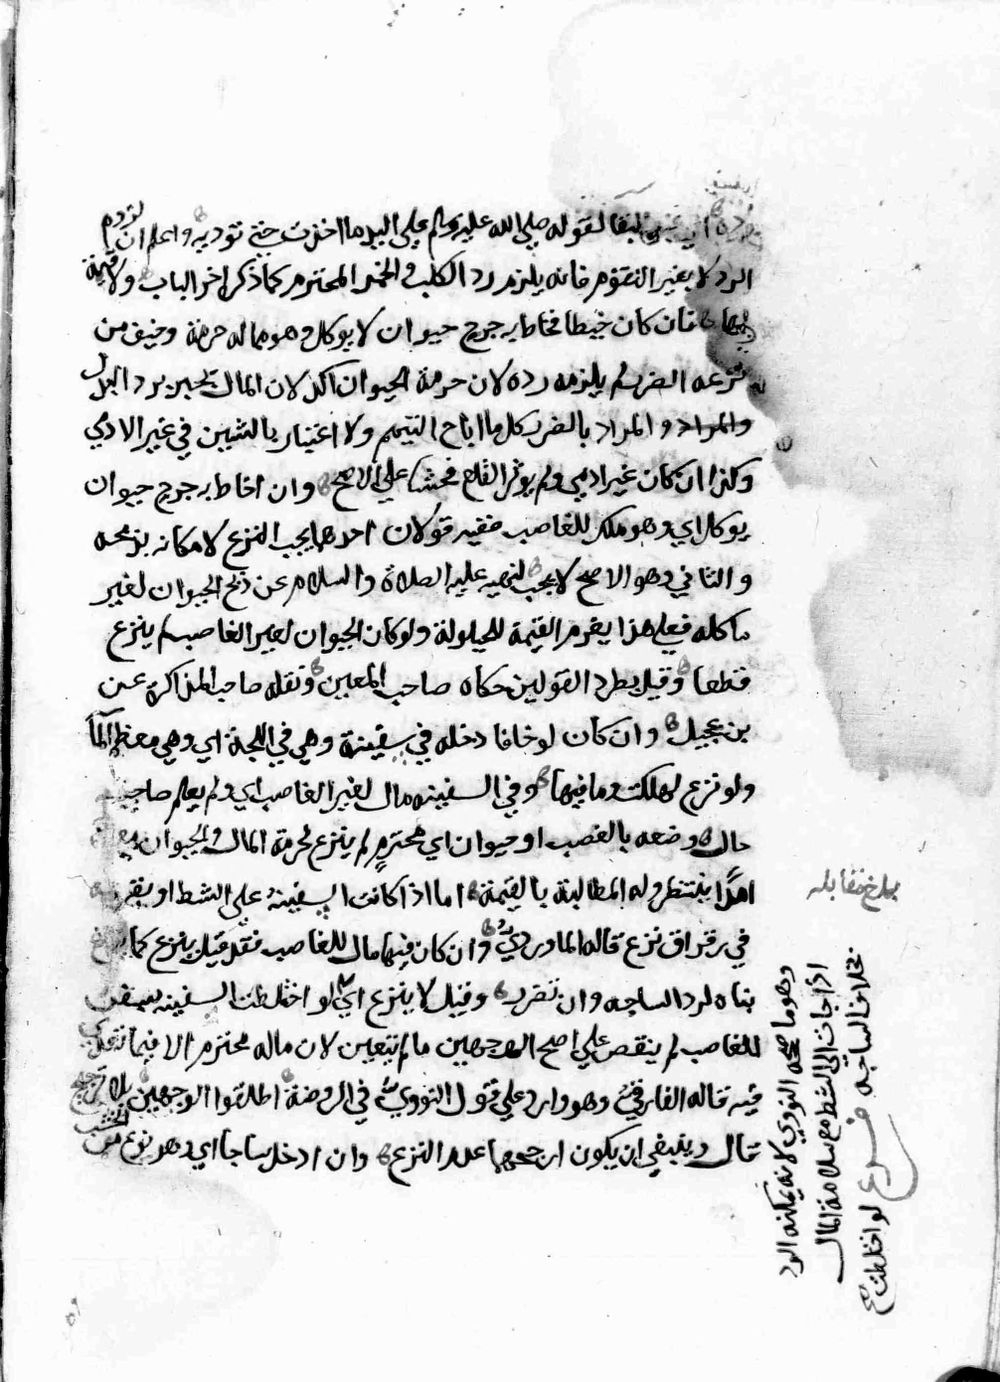 لقوله صلى الله عليه وسلم على اليد ما اخذت حتى توديه واعلم ان لزوم
الرد لا بغير التقوم فانه يلزم رد الكلب والخمر المحترم كما ذكر اخر الباب ولا قيمة
لهما فان كان خيطا فخاط به جرح حيوان لا يوكل وهو مما له حرمة وخيف من
نزعه الضرر لم يلزمه رده لان حرمة الحيوان اكد لان المال يجبر برد البدل
والمراد والمراد بالضرر كل ما اباح التيمم ولا اعتبار بالشين في غير الادمي
وكذا ان كان غير ادمي ولم يوثر القلع فحشا على الاصح وان خاط به جرح حيوان
يوكل اي وهو ملك للغاصب ففيه قولان احدهما يجب النزع لامكانه بذبحه
والثاني وهو الاصح لا يجب لنهيه عليه الصلاة والسلام عن ذبح الحيوان لغير
ماكله فعلى هذا يغرم القيمة للحيلولة ولو كان الحيوان لغير الغاصب لم ينزع
قطعا وقيل بطرد القولين حكاه صاحب المعين ونقله صاحب المذاكرة عن
بن عجيل وان كان لوحا فادخله في سفينة وهي في اللجة اي وهي معظم الما
ولو نزع لهلكت وما فيها وفي السفينه مال لغير الغاصب اي ولم يعلم صاحبه
حال وضعه بالغصب او حيوان اي محترم لم ينزع لحرمة المال والحيوان
امدا ينتظر وله المطالبة بالقيمة اما اذا كانت السفينة على الشط او بقربه
في رقراق نزع قاله الماوردي وان كان فيها مال للغاصب فقد قيل ينزع كما
بناه لرد الساجه وان تضرر وقيل لا ينزع اي لو اختلطت السفينه بسفن
للغاصب لم ينقص على اصح الوجهين ما لم يتعين لان ماله محترم الا فيما تعدى
فيه قاله الفارقي وهو وارد على قول النووي في الروضة اطلقوا الوجهين بلا ترجيح
قال وينبغي ان يكون ارجحهما عدم النزع وان ادخل ساجا اي وهو نوع من الخشب
بلغ مقابله
وهو ما صححه النووي لانه يمكنه الرد
اذا جات الى الشط مع سلامة المال
بخلاف الساجه فرع لو اختلطت